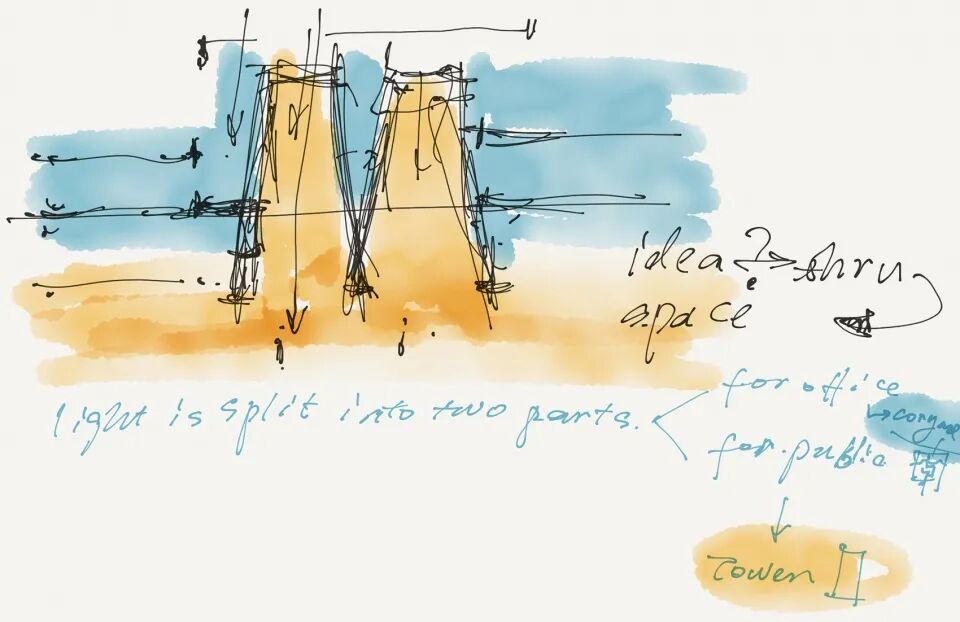 idea ? thru
space
light is split into two parts.
for office
for public
Tower